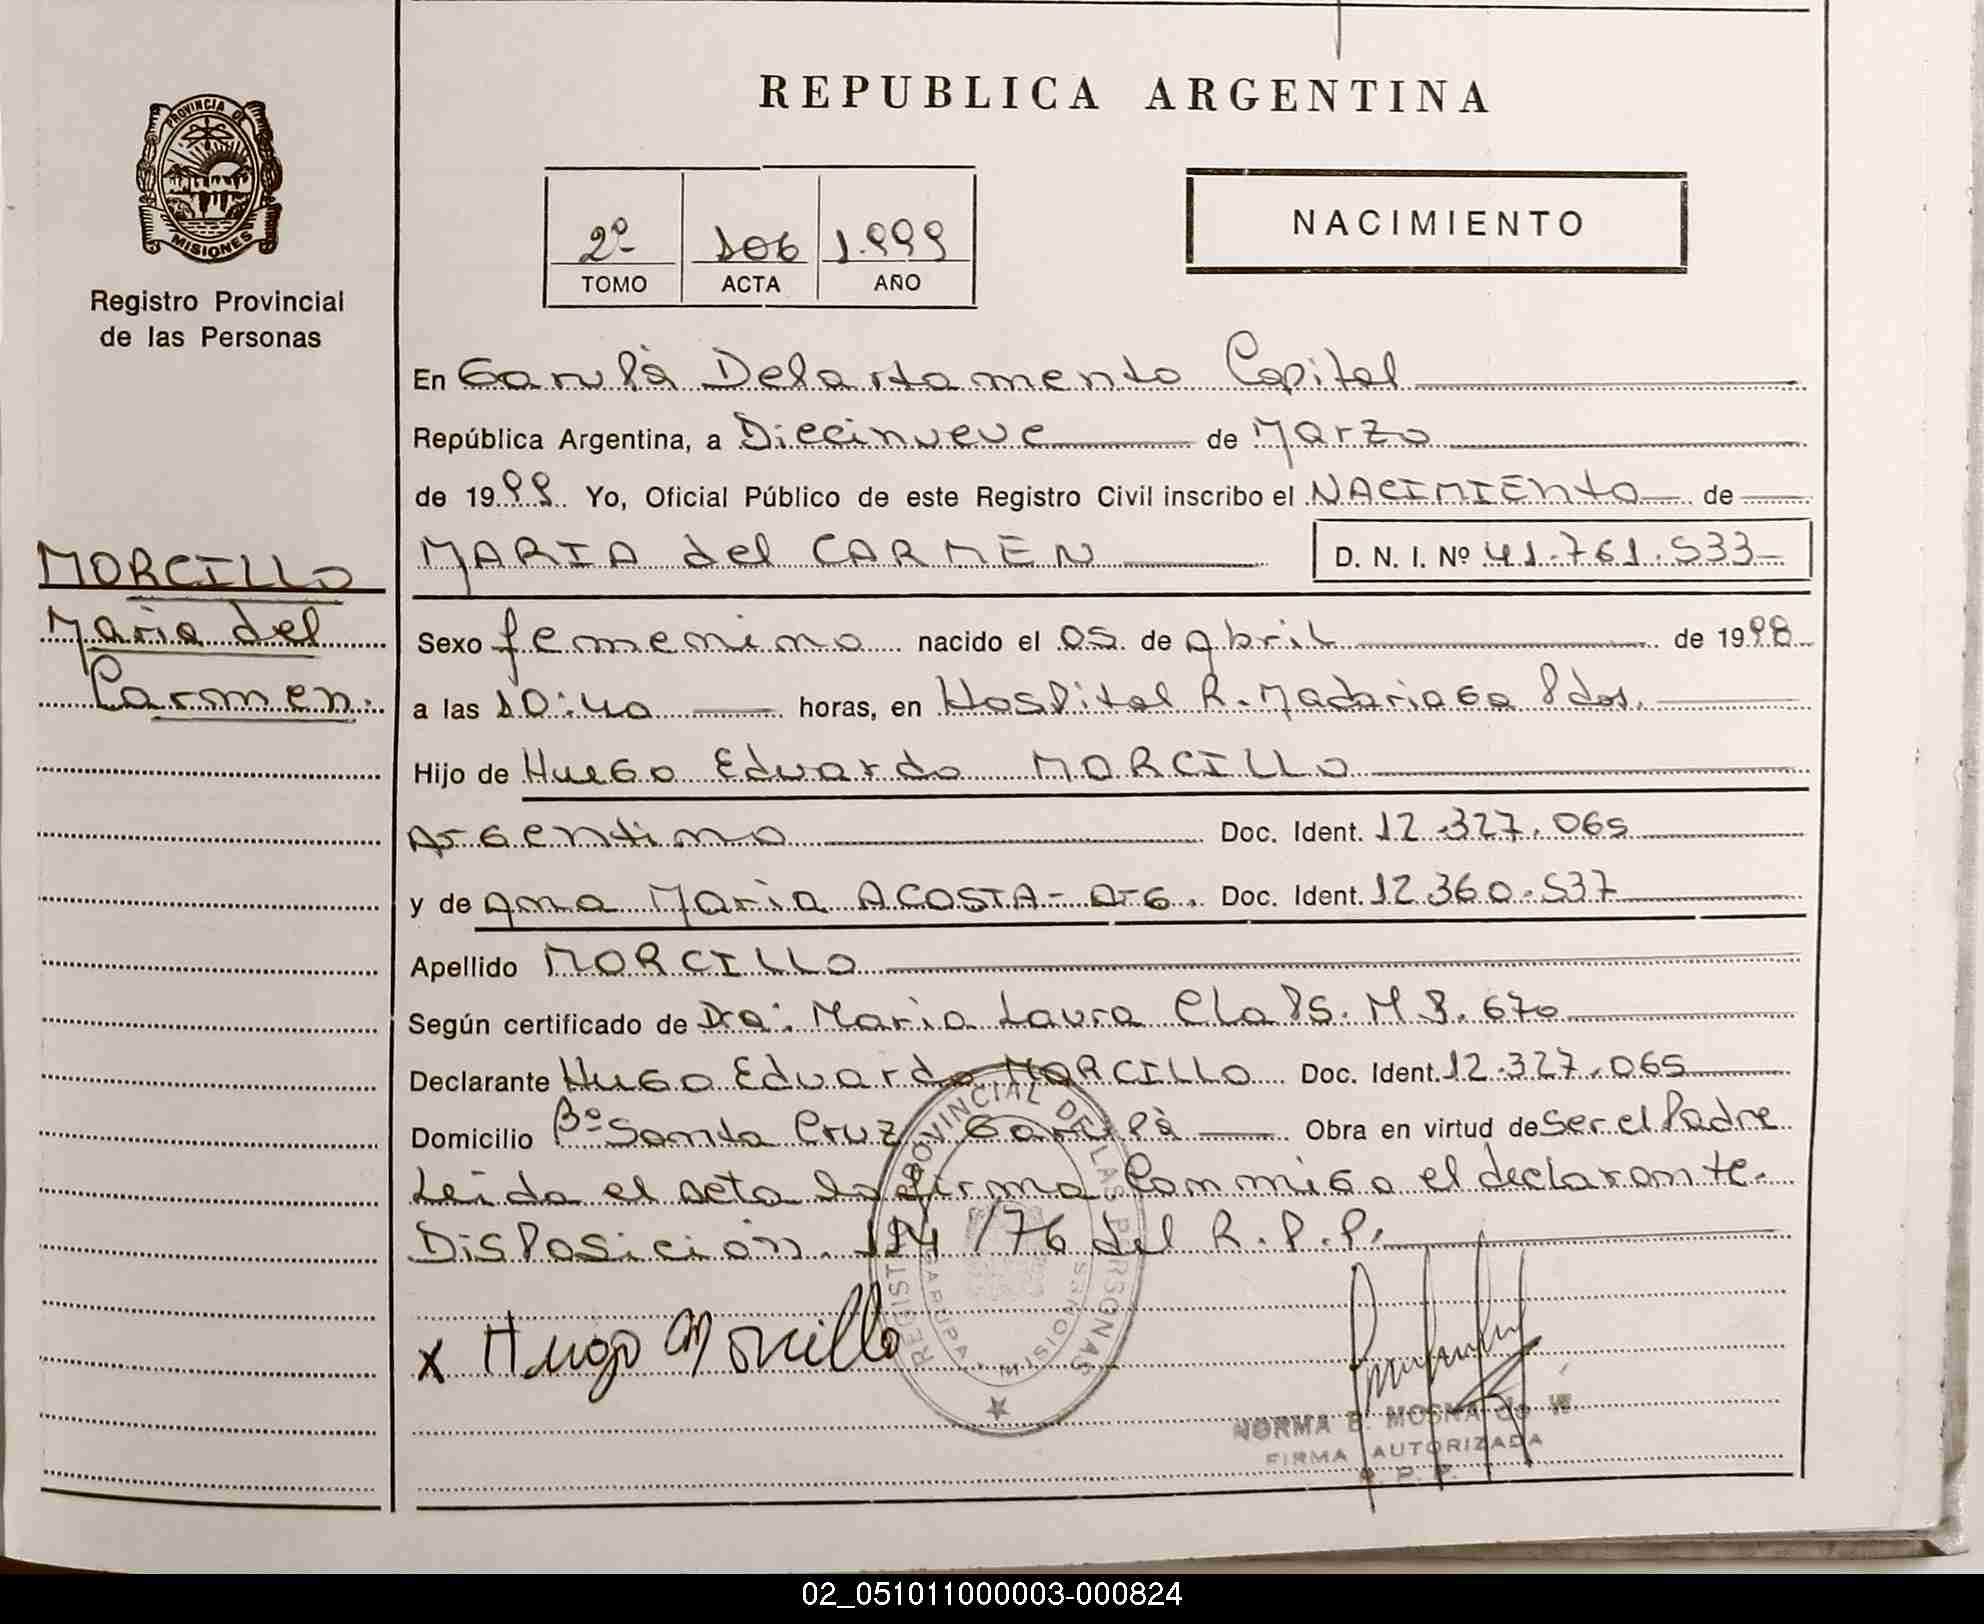 REPUBLICA ARGENTINA
PROVINCIA DE
MISIONES
Registro Provincial
de las Personas
2º 106 1.999
TOMO ACTA AÑO
NACIMIENTO
En Garupá Departamento Capital
República Argentina, a Diecinueve de Marzo
de 1999. Yo, Oficial Público de este Registro Civil inscribo el NACIMIENTO de
MORCILLO
Maria del
Carmen.
MARIA del CARMEN D. N. I. Nº 41.761.533
Sexo femenino nacido el 05 de abril de 1998
a las 10:40 horas, en Hospital R. Madariaga Pdas.
Hijo de Hugo Eduardo MORCILLO
Argentino Doc. Ident. 12.327.065
y de Ana Maria ACOSTA - Arg. Doc. Ident. 12.360.537
Apellido MORCILLO
Según certificado de Dra: Maria Laura Claps. M.P. 670
Declarante Hugo Eduardo MORCILLO Doc. Ident. 12.327.065
Domicilio Bº Santa Cruz Garupá Obra en virtud de ser el Padre
Leida el acta la firma Conmigo el declarante.
Disposición 194/76 del R.P.P.
REGISTRO PROVINCIAL DE LAS PERSONAS
GARUPA MISIONES
x Hugo Morcillo
NORMA B. MOSNA
FIRMA AUTORIZADA
R. P. P.
02_051011000003-000824